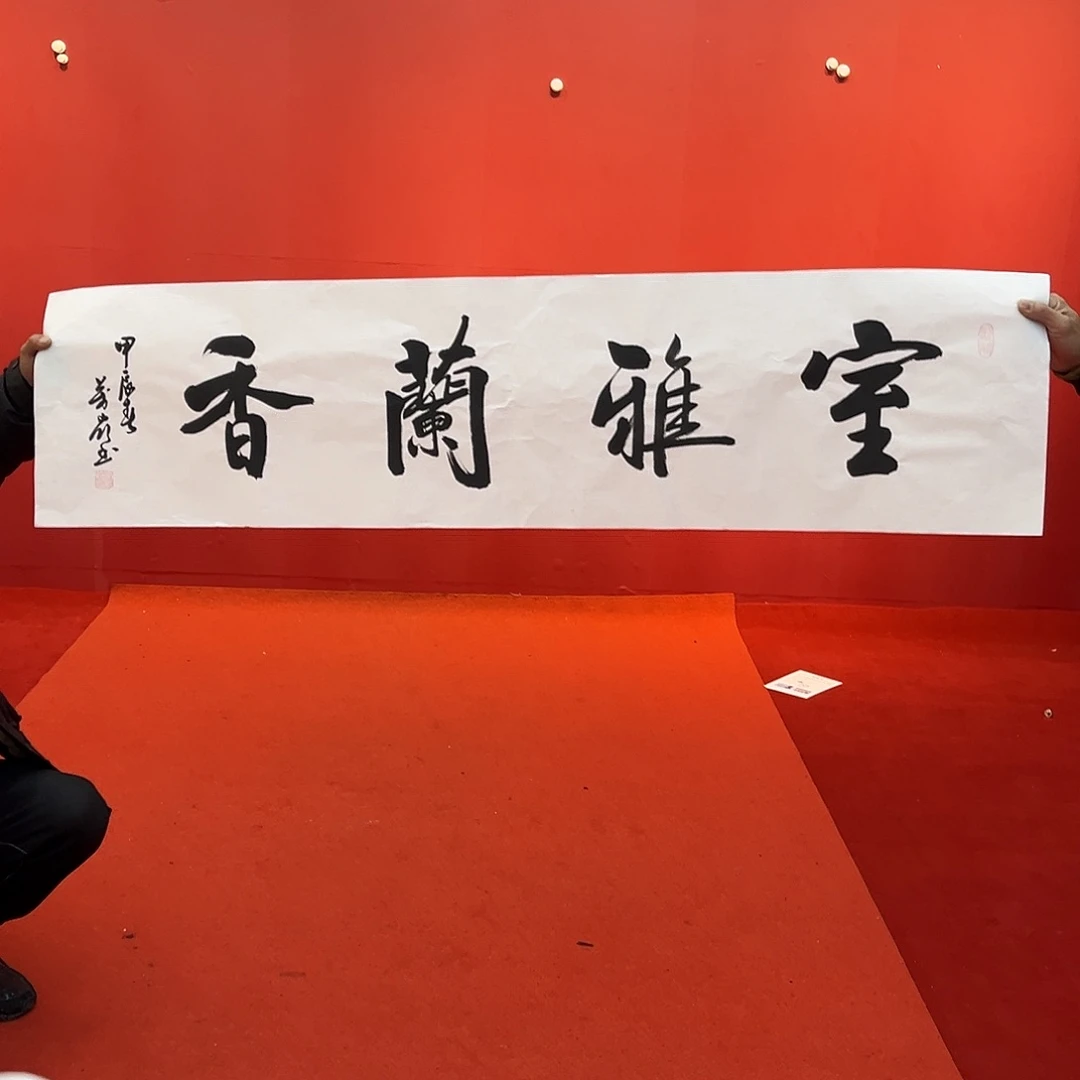 室雅蘭香
甲辰春